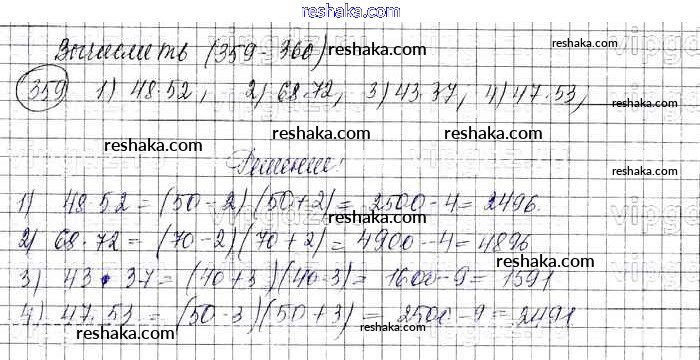 reshaka.com
Вычислить (359-360) reshaka.com
359 1) 48·52, 2) 68·72, 3) 43·37, 4) 47·53,
reshaka.com reshaka.com
Решение:
1) 48·52 = (50-2)(50+2) = 2500-4 = 2496.
reshaka.com reshaka.com
2) 68·72 = (70-2)(70+2) = 4900-4 = 4896
3) 43·37 = (40+3)(40-3) = 1600-9 = 1591
reshaka.com
4) 47·53 = (50-3)(50+3) = 2500-9 = 2491
reshaka.com reshaka.com
reshaka.com